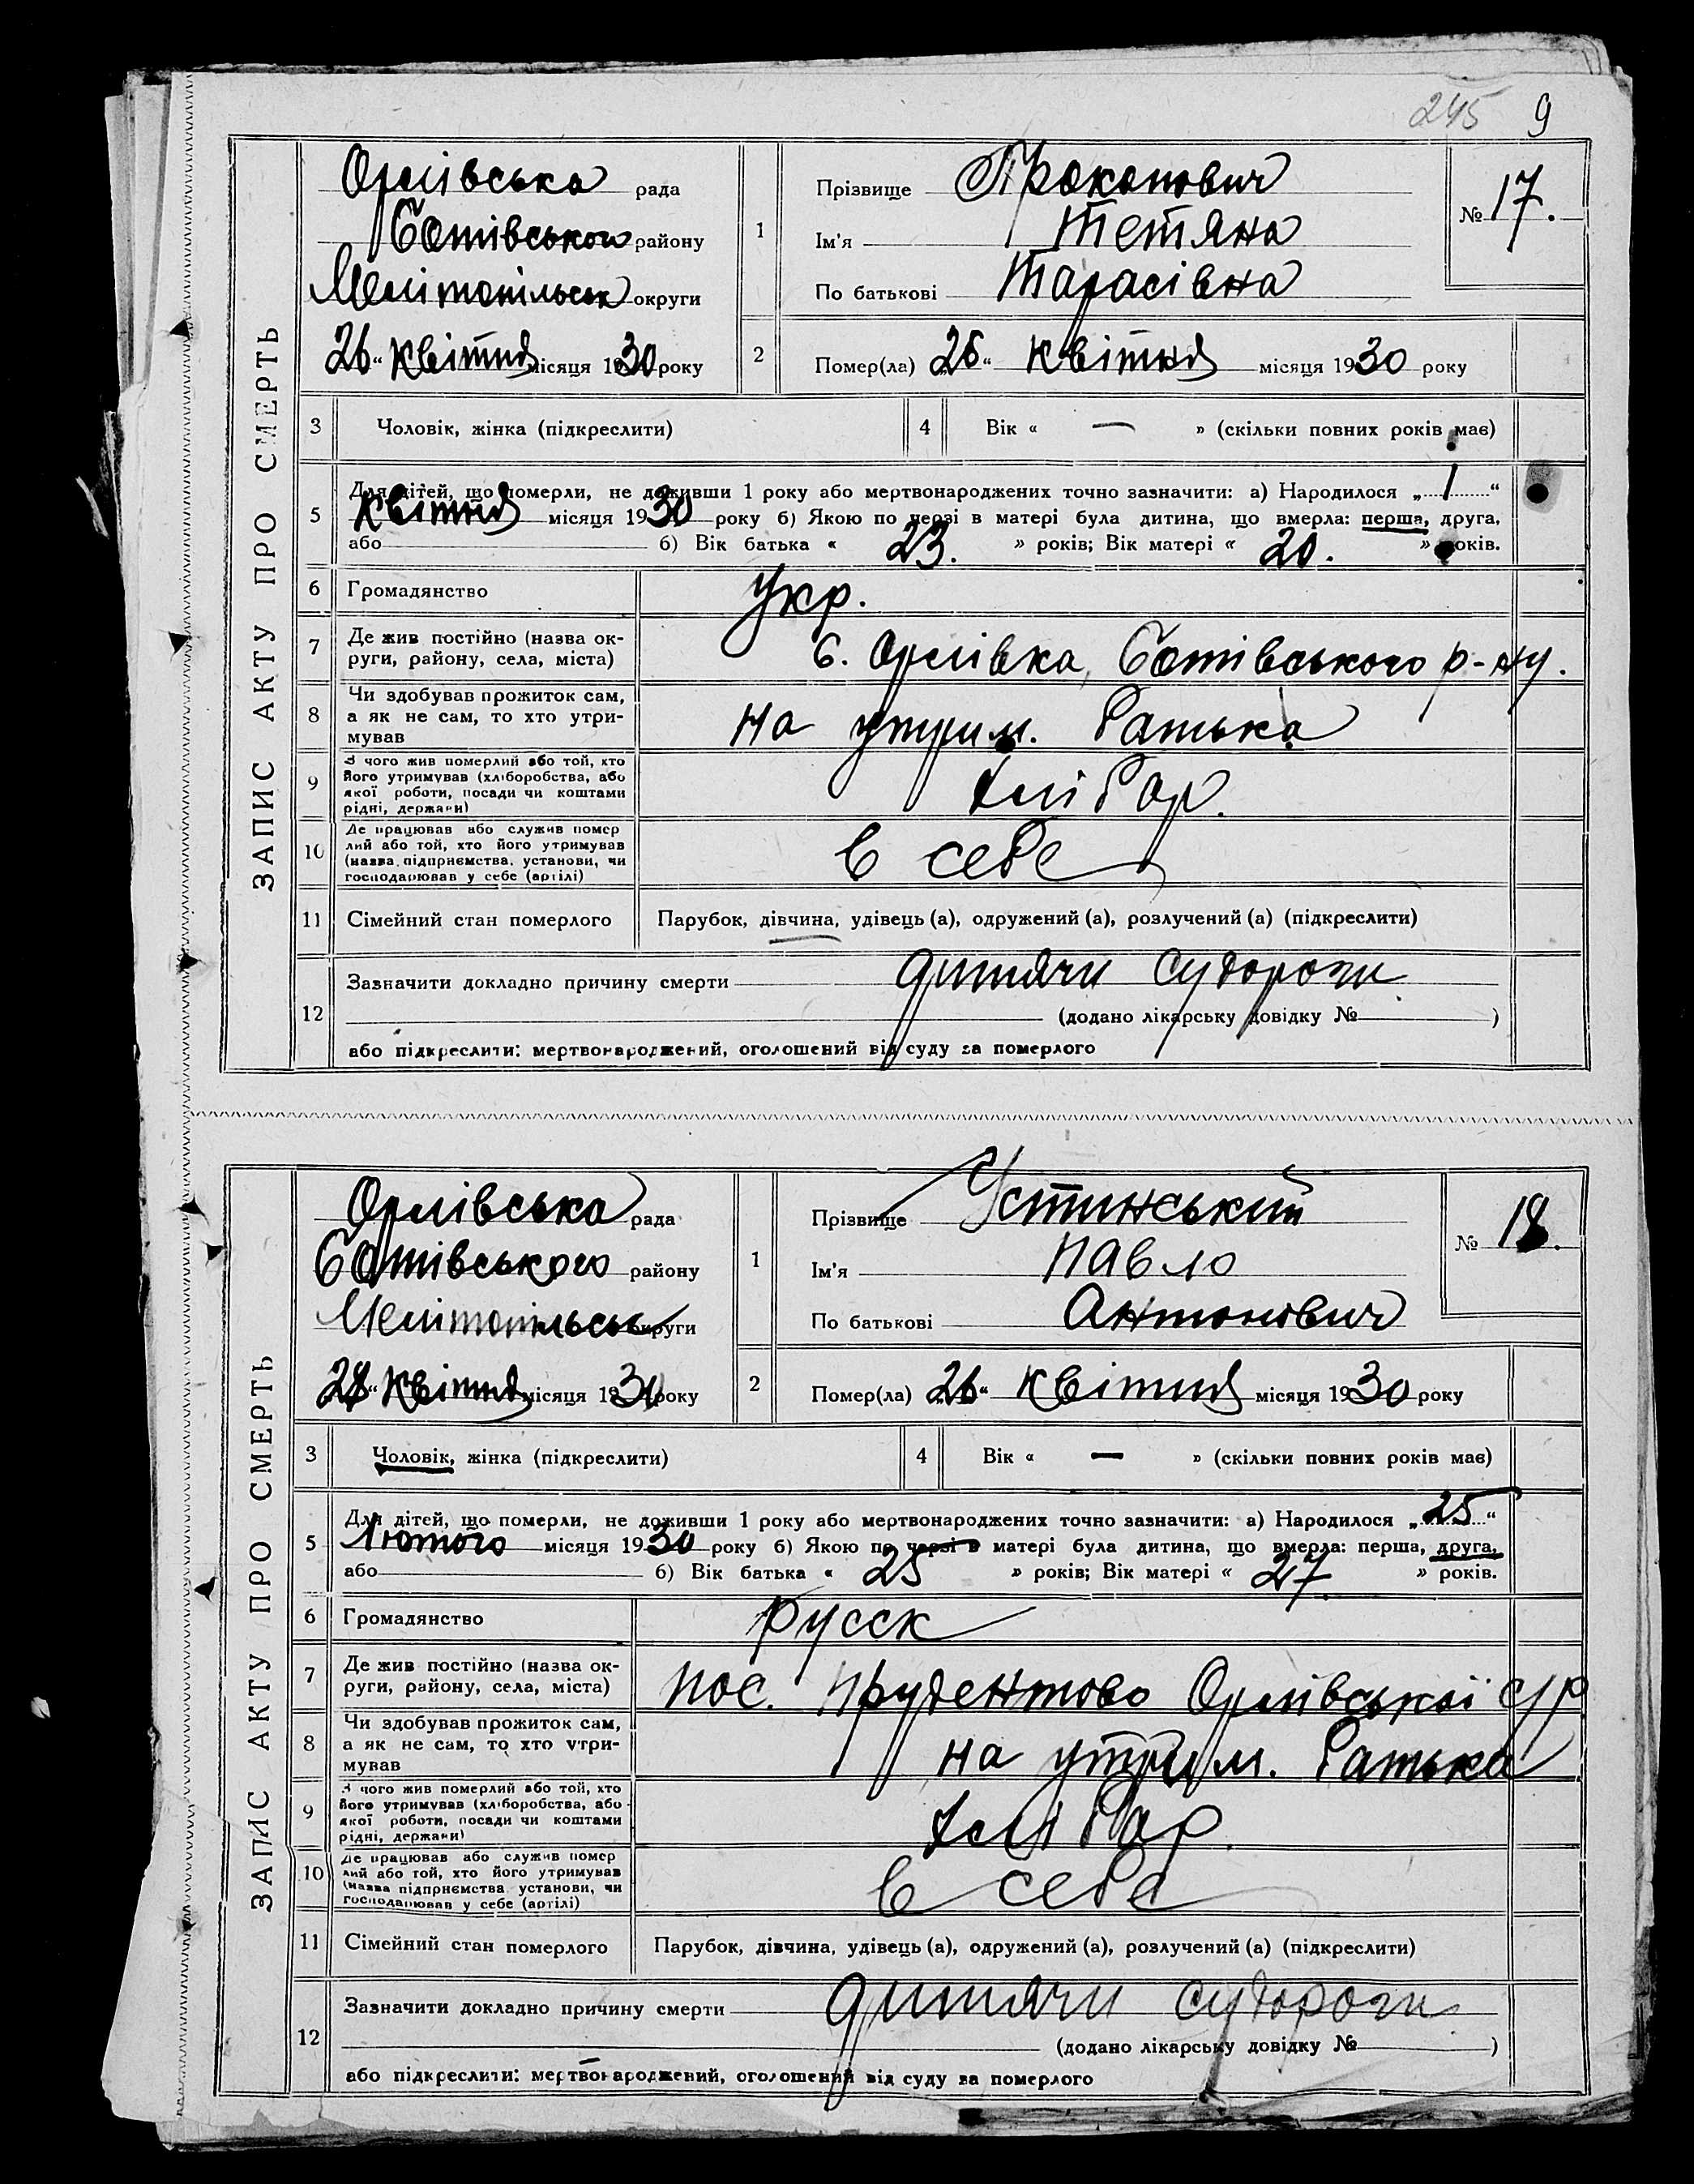 245 9
ЗАПИС АКТУ ПРО СМЕРТЬ
Орлівська рада
Ботівського району
Мелітопільськ округи
26 " Квітня місяця 1930 року
1
Прізвище Прокопович
Ім'я Тетяна
По батькові Тарасівна
№ 17.
2
Помер(ла) „26 " Квітня місяця 1930 року
3 Чоловік, жінка (підкреслити)
4 Вік « — » (скільки повних років має)
5 Для дітей, що померли, не доживши 1 року або мертвонароджених точно зазначити: а) Народилося „ 1 "
Квітня місяця 1930 року б) Якою по черзі в матері була дитина, що вмерла: перша, друга,
або б) Вік батька « 23. » років; Вік матері « 20. » років.
6 Громадянство Укр.
7 Де жив постійно (назва ок-
руги, району, села, міста) с. Орлівка, Ботівського р-ну.
8 Чи здобував прожиток сам,
а як не сам, то хто утри-
мував на утрим. батька
9 З чого жив померлий або той, хто
його утримував (хліборобства, або
якої роботи, посади чи коштами
рідні, держави) хлібор.
10 Де працював або служив помер
лий або той, хто його утримував
(назва підприємства, установи, чи
господарював у себе (артілі) в себе
11 Сімейний стан померлого Парубок, дівчина, удівець (а), одружений (а), розлучений (а) (підкреслити)
12 Зазначити докладно причину смерти дитячи судороги
(додано лікарську довідку № )
або підкреслити: мертвонароджений, оголошений від суду за померлого
ЗАПИС АКТУ ПРО СМЕРТЬ
Орлівська рада
Ботівського району
Мелітопільськ округи
28 " Квітня місяця 1930 року
1
Прізвище Устинський
Ім'я Павло
По батькові Антонович
№ 18.
2
Помер(ла) „26 " Квітня місяця 1930 року
3 Чоловік, жінка (підкреслити)
4 Вік « — » (скільки повних років має)
5 Для дітей, що померли, не доживши 1 року або мертвонароджених точно зазначити: а) Народилося „ 25 "
Лютого місяця 1930 року б) Якою по черзі в матері була дитина, що вмерла: перша, друга,
або б) Вік батька « 25 » років; Вік матері « 27. » років.
6 Громадянство русск
7 Де жив постійно (назва ок-
руги, району, села, міста) пос. Прудентово Орлівської с/р
8 Чи здобував прожиток сам,
а як не сам, то хто утри-
мував на утрим. батька
9 З чого жив померлий або той, хто
його утримував (хліборобства, або
якої роботи, посади чи коштами
рідні, держави) хлібор.
10 Де працював або служив помер
лий або той, хто його утримував
(назва підприємства установи, чи
господарював у себе (артілі) в себе
11 Сімейний стан померлого Парубок, дівчина, удівець (а), одружений (а), розлучений (а) (підкреслити)
12 Зазначити докладно причину смерти дитячи судороги
(додано лікарську довідку № )
або підкреслити: мертвонароджений, оголошений від суду за померлого